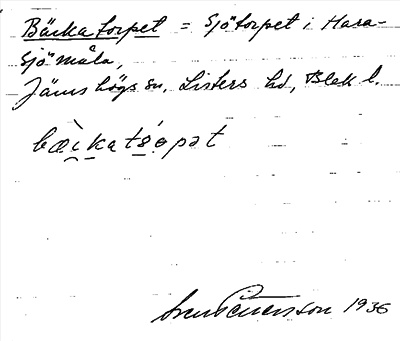 Bäckatorpet = Sjötorpet i Hara-
sjömåla,
Jämshögs sn, Listers hd, Blek l.
bæ̀katsópət
Sven Benson 1936